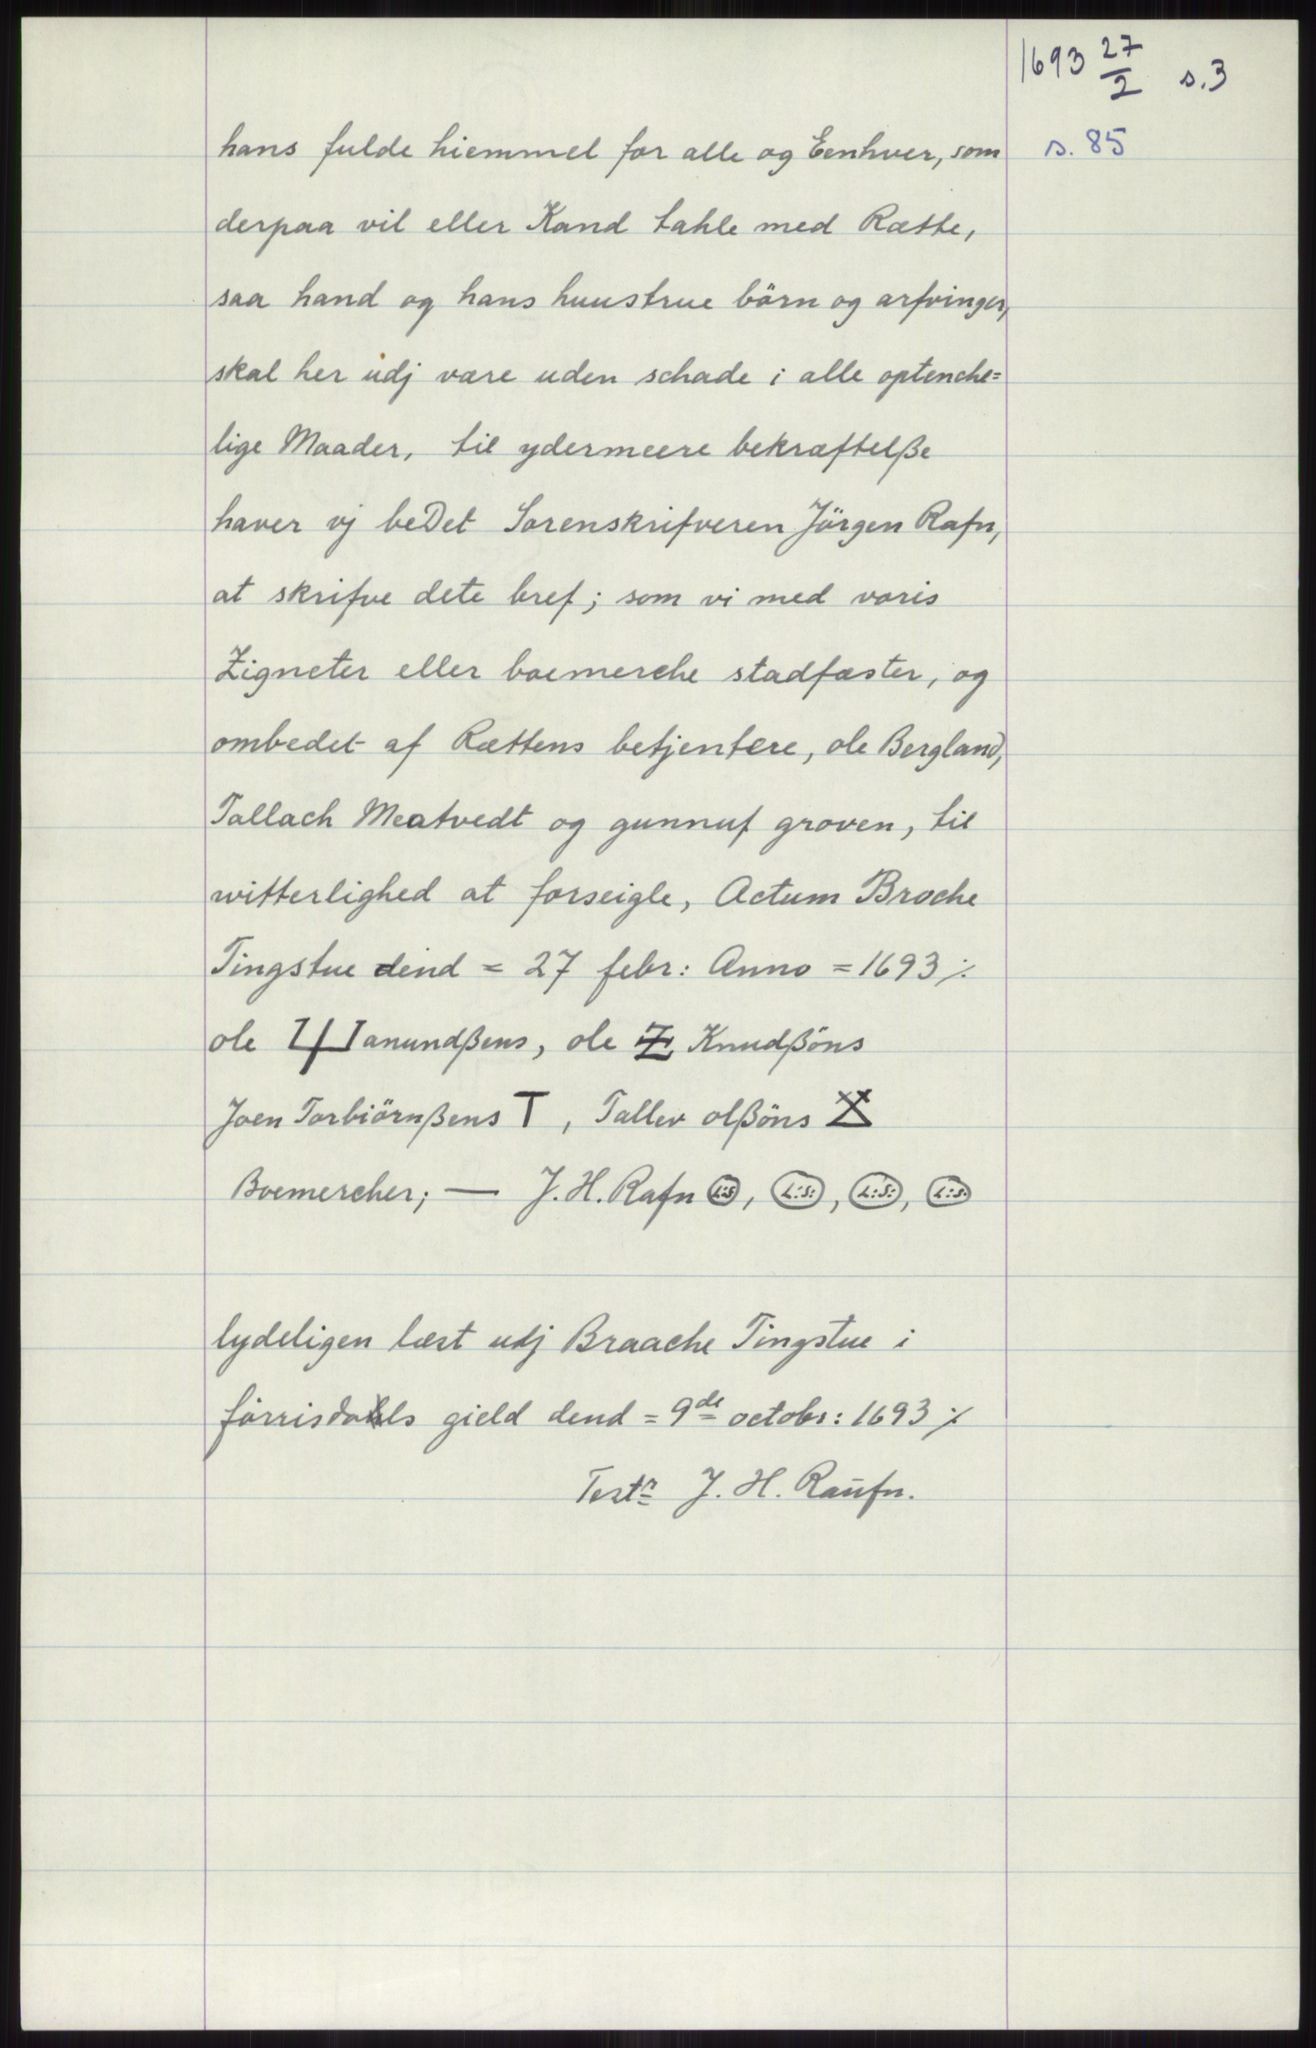 1693 27/2 s.3
s. 85
hans fulde hiemmel for alle og Eenhver, som
derpaa vil eller Kand tahle med Rætte,
saa hand og hans huustrue börn og arfvinger,
skal her udj være uden schade i alle optenche=
lige Maader, til ydermeere bekræftelße
haver vj beDet Sorenskrifveren Jörgen Rafn,
at skrifve dete bref; som vi med voris
Zigneter eller boemerche stadfæster, og
ombedet af Rættens betjentere, ole Bergland,
Tallach Meatvedt og gunnuf groven, til
witterlighed at forseigle, Actum Broche
Tingstue dend = 27 febr: Anno = 1693 ⁒
ole anundßens, ole Knudßöns
Joen Torbiörnßens T, Tallev olßöns
Boemercher; — J. H. Rafn L:S, L:S:, L:S:, L:S:
lydeligen læst udj Braache Tingstue i
förrisdahls gield dend = 9de octobr: 1693 ⁒
Testr J. H. Raūfn.